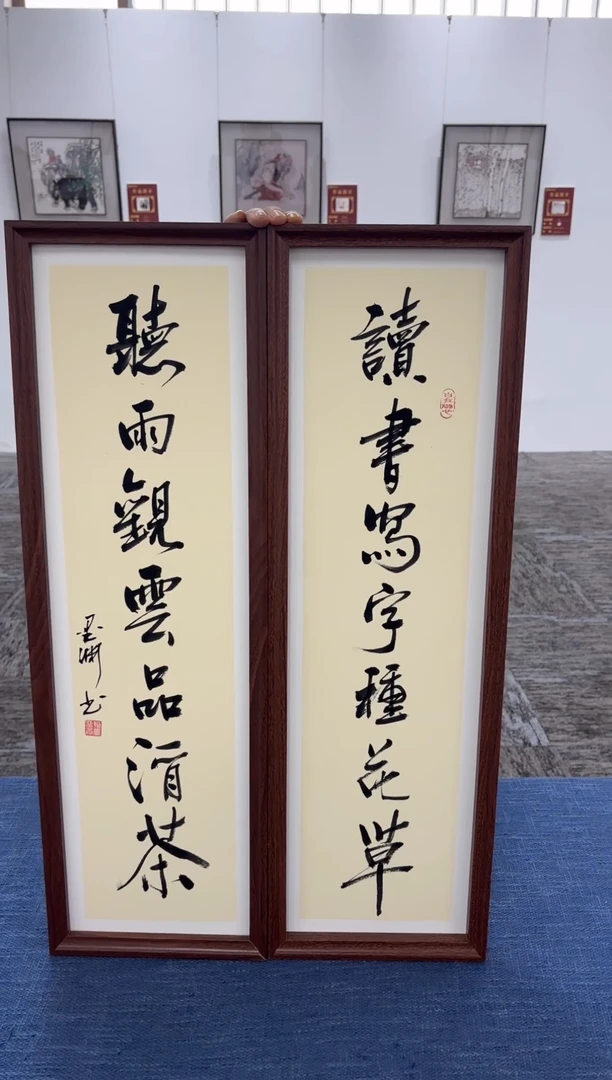 讀書寫字種花草
聽雨觀雲品清茶
墨淵书